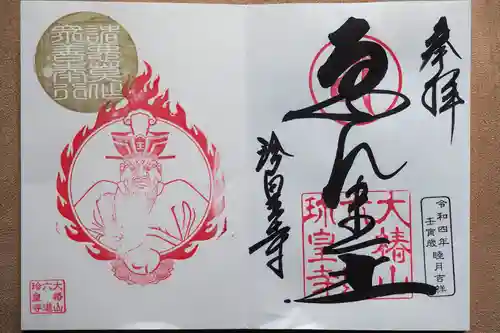 奉拝
ゑんま王
珍皇寺
大椿山
六道
珍皇寺
令和四年睦月吉祥
壬寅歳
諸悪莫作
衆善奉行
王
大椿山
六道
珍皇寺